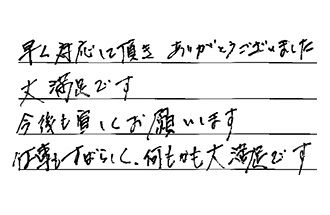 早く対応して頂き ありがとうございました
大満足です
今後も宜しくお願いします
仕事もすばらしく、何もかも大満足です